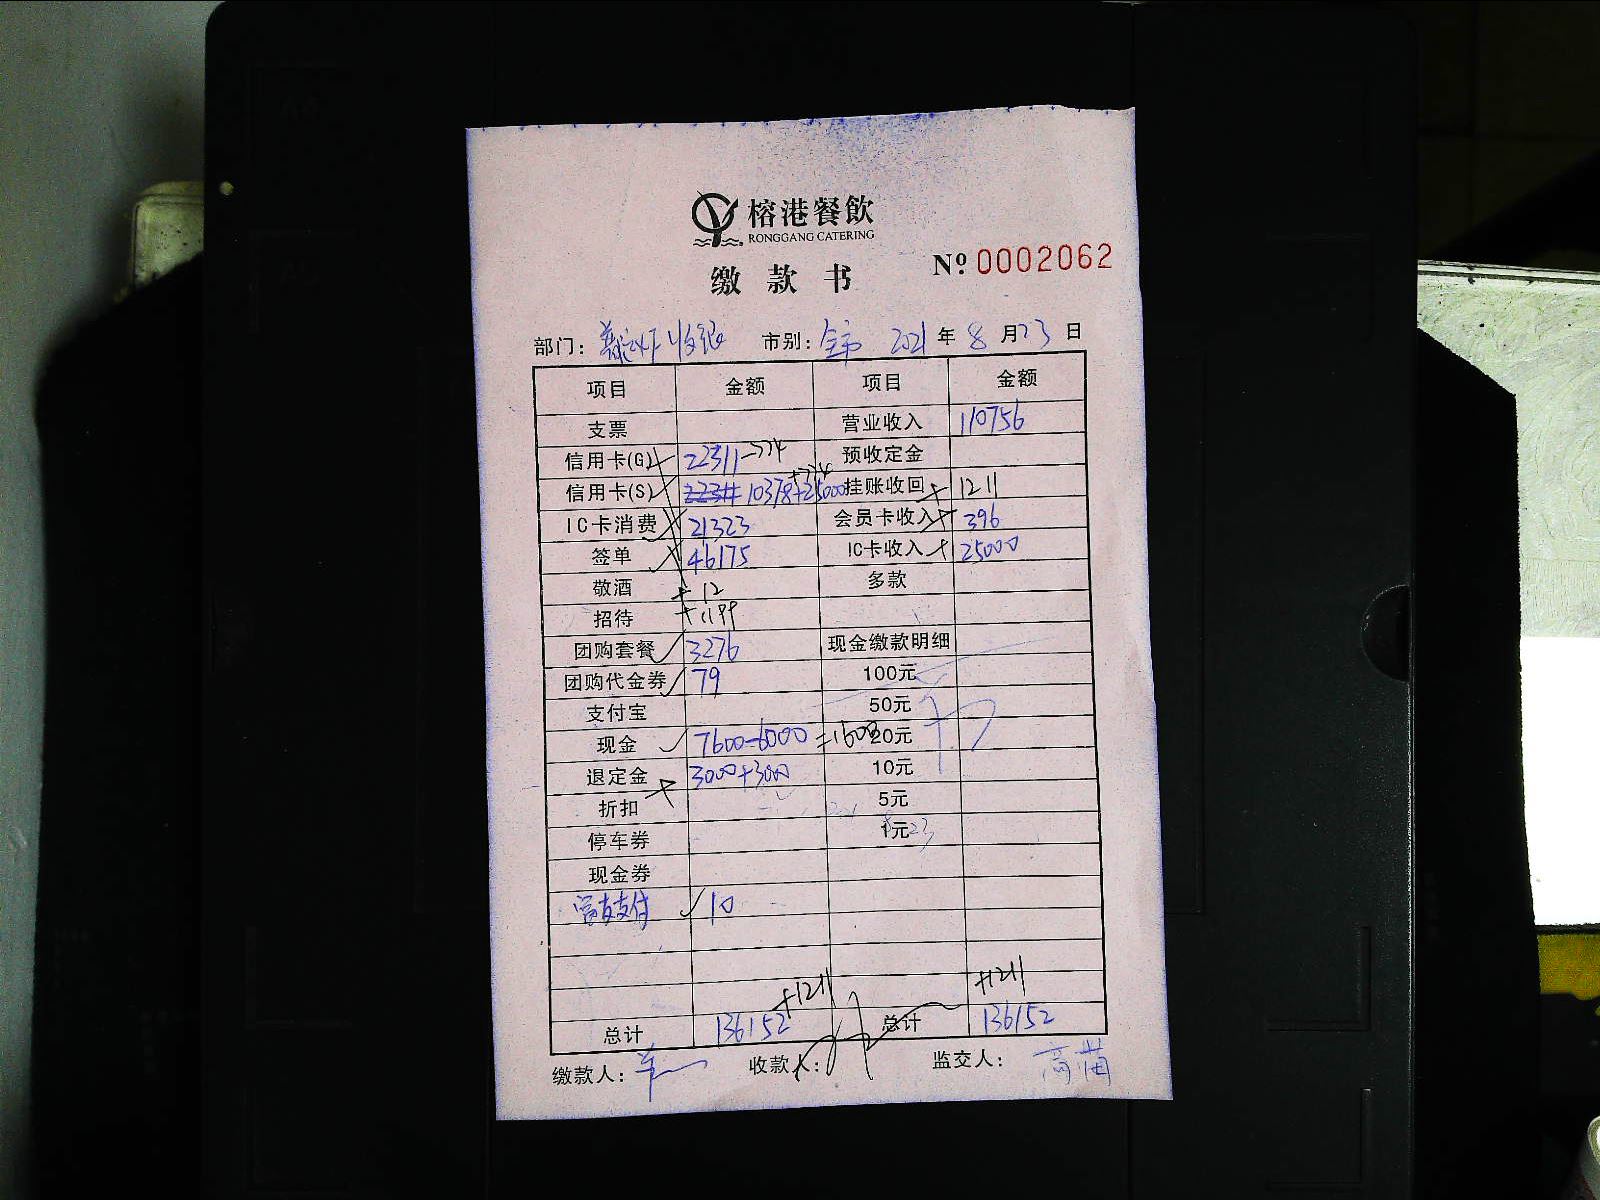 榕港餐飲
RONGGANG CATERING
缴款书 Nº 0002062
部门: 收银 市别: 全市 2021年8月23日
项目 金额 项目 金额
支票 营业收入 110756
信用卡(G) 22311-774 预收定金
信用卡(S) 10378+25000+774 挂账收回 1211
IC卡消费 21323 会员卡收入 396
签单 46175 IC卡收入 25000
敬酒 +12 多款
招待 +1199
团购套餐 3276 现金缴款明细
团购代金券 79 100元
支付宝 50元
现金 7600-6000=1600 20元
退定金 3000+3000 10元
折扣 5元
停车券 1元
现金券
支付 10
+1211 +1211
总计 136152 总计 136152
缴款人: 收款人: 监交人: